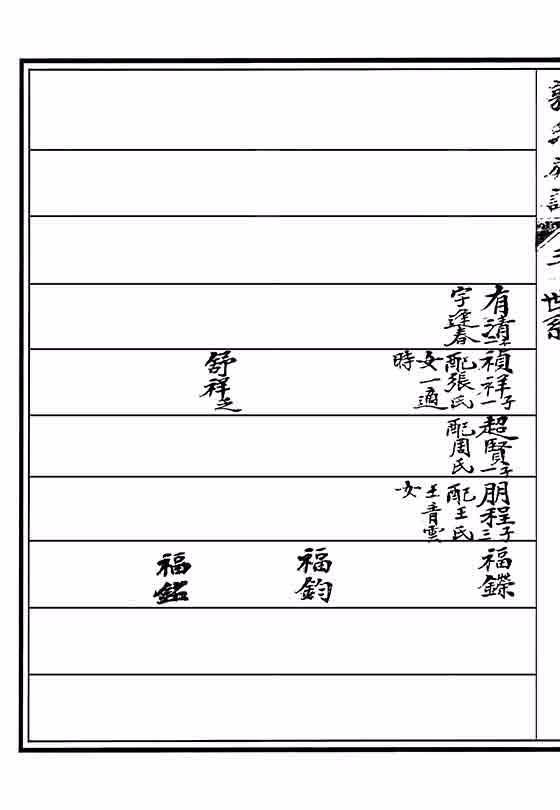 族譜
世系
有清子一
字逢春
禎祥子一
配張氏
女一適
時
舒祥之
超賢子一
配周氏
朋程子三
配王氏
王青雲
女
福鑅
福鈞
福銘